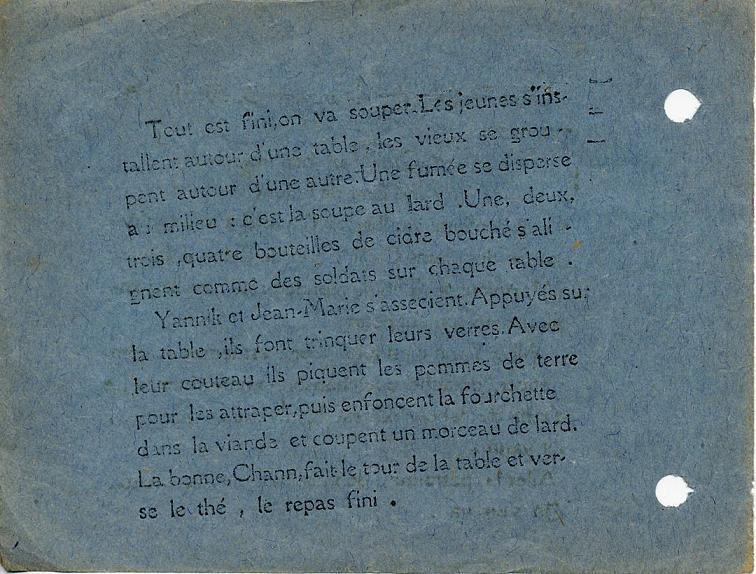 Tout est fini,on va souper.Les jeunes s'ins-
tallent autour d'une table , les vieux se grou -
pent autour d'une autre.Une fumée se disperse
au milieu : c'est la soupe au lard .Une, deux,
trois ,quatre bouteilles de cidre bouché s'ali -
gnent comme des soldats sur chaque table .
Yannik et Jean-Marie s'asseoient.Appuyés sur
la table ,ils font trinquer leurs verres.Avec
leur couteau ils piquent les pommes de terre
pour les attraper,puis enfoncent la fourchette
dans la viande et coupent un morceau de lard.
La bonne,Chann,fait le tour de la table et ver-
se le thé , le repas fini .